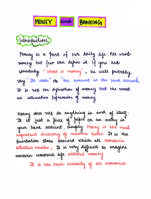 MONEY AND BANKING
Introduction:
Money is a part of our daily life. We want
money but just can define it. If you ask
somebody "What is money", he will probably
say "Its cash" or "the amount in the bank account".
It is not the definition of money but the
an alternative expression of money.
Money does not do anything in and of itself.
It is just a piece of paper or an entry in
your bank account. Money is the most
important discovery of modern times. It is the
foundation stone around which all
It is very difficult to imagine
modern economic life without money.
It is the core necessity of all economies.